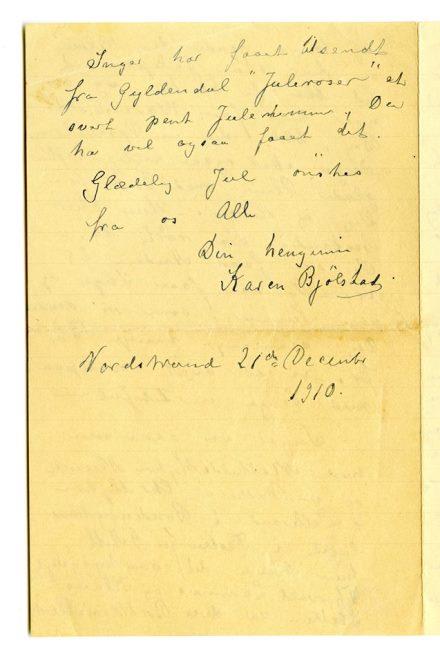 Inger har faaet tilsendt
fra Gyldendal "Juleroser" et
svert pent Julenummer, Du
har vel ogsaa faaet det.
Glædelig Jul ønskes
fra os Alle
Din hengivne
Karen Bjölstad.
Nordstrand 21de Decembr
1910.